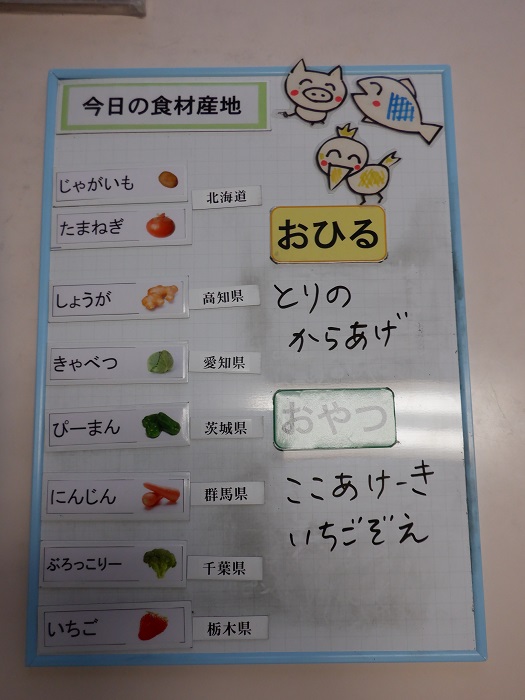 今日の食材産地
じゃがいも
北海道
たまねぎ
しょうが
高知県
きゃべつ
愛知県
ぴーまん
茨城県
にんじん
群馬県
ぶろっこりー
千葉県
いちご
栃木県
おひる
とりの
からあげ
おやつ
ここあけーき
いちごぞえ